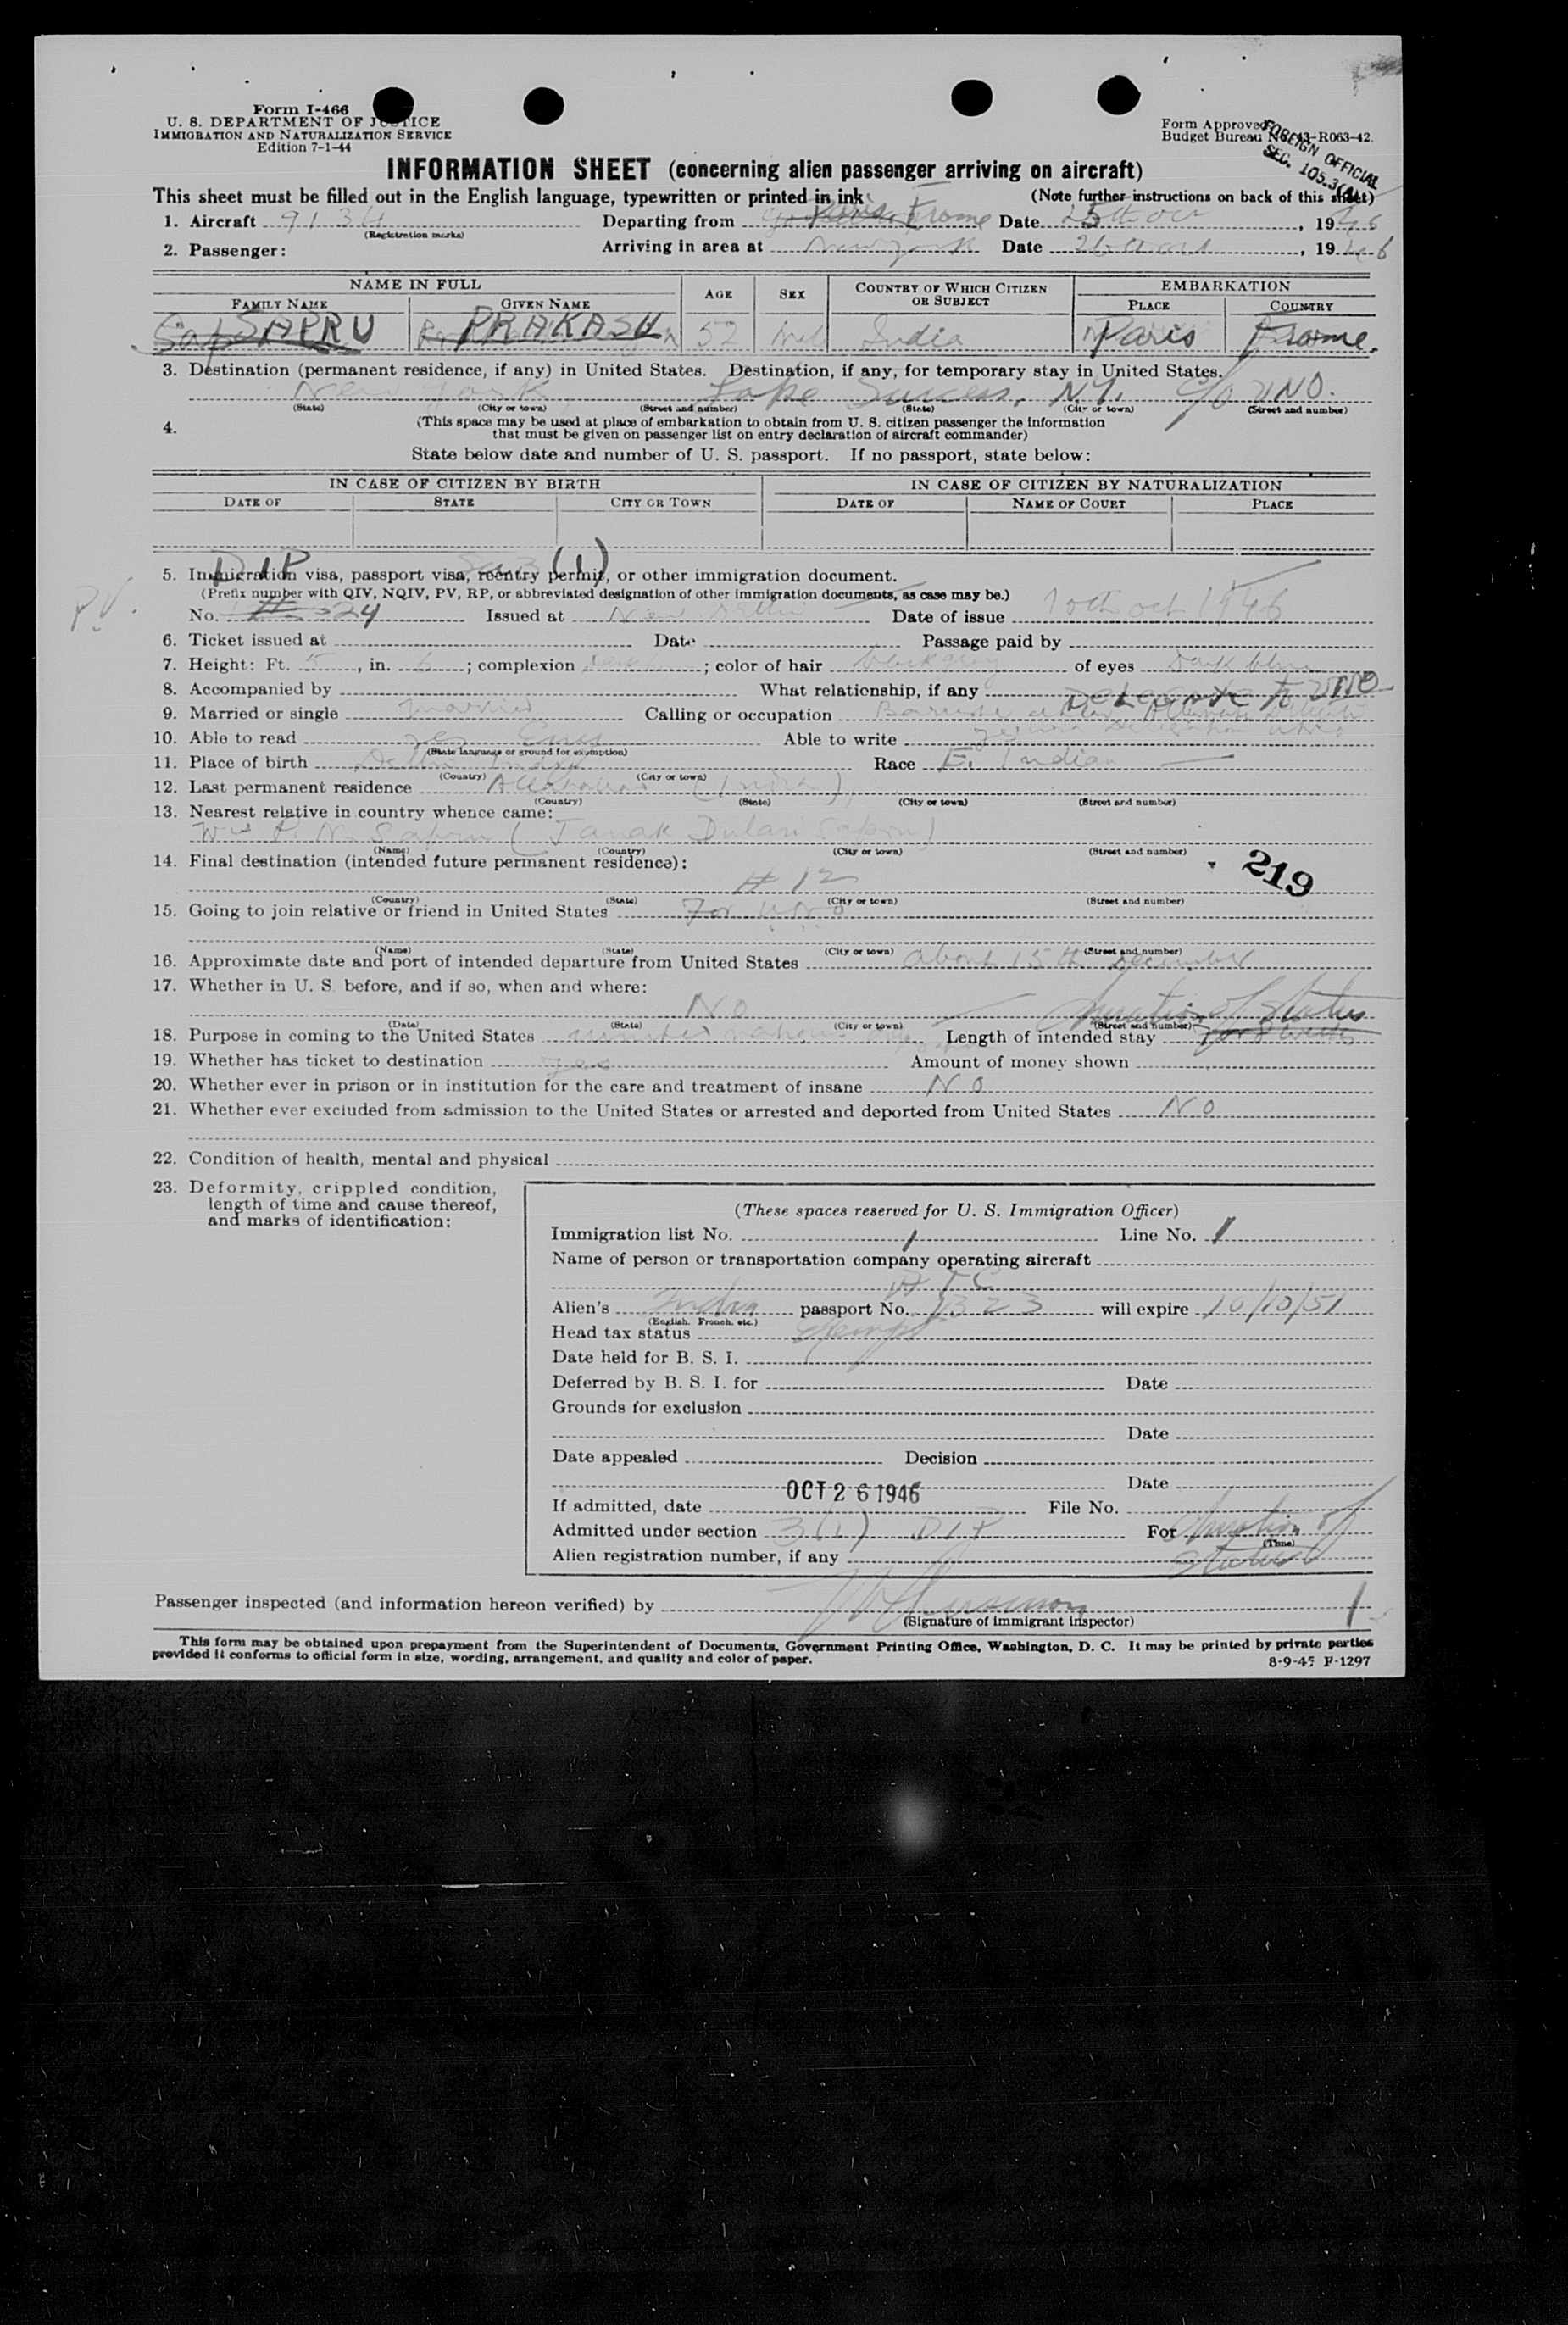 Form I-466
U. S. DEPARTMENT OF JUSTICE
IMMIGRATION AND NATURALIZATION SERVICE
Edition 7-1-44
Form Approved
Budget Bureau No. 43-R063-42.
FOREIGN OFFICIAL
SEC. 105.3(A)
INFORMATION SHEET (concerning alien passenger arriving on aircraft)
This sheet must be filled out in the English language, typewritten or printed in ink (Note further instructions on back of this sheet)
1. Aircraft 9134 Departing from Paris Date 25th Oct, 1946
(Registration marks)
2. Passenger: Arriving in area at New York Date 26th Oct, 1946
NAME IN FULL AGE SEX COUNTRY OF WHICH CITIZEN OR SUBJECT EMBARKATION
FAMILY NAME GIVEN NAME PLACE COUNTRY
SAPRU PRAKASH 52 India Paris
3. Destination (permanent residence, if any) in United States. Destination, if any, for temporary stay in United States.
New York Lake Success, N.Y. c/o UNO.
(State) (City or town) (Street and number) (State) (City or town) (Street and number)
4. (This space may be used at place of embarkation to obtain from U. S. citizen passenger the information
that must be given on passenger list on entry declaration of aircraft commander)
State below date and number of U. S. passport. If no passport, state below:
IN CASE OF CITIZEN BY BIRTH IN CASE OF CITIZEN BY NATURALIZATION
DATE OF STATE CITY OR TOWN DATE OF NAME OF COURT PLACE
DIP (1)
5. Immigration visa, passport visa, reentry permit, or other immigration document.
(Prefix number with QIV, NQIV, PV, RP, or abbreviated designation of other immigration documents, as case may be.)
P.V.
No. 24 Issued at New Delhi Date of issue 10th Oct 1946
6. Ticket issued at Date Passage paid by
7. Height: Ft. 5, in. 6; complexion dark; color of hair black grey of eyes dark
8. Accompanied by What relationship, if any
DELEGATE to UNO
9. Married or single married Calling or occupation
10. Able to read yes Able to write
(State language or ground for exemption)
11. Place of birth Delhi India Race E. Indian
(Country) (City or town)
12. Last permanent residence Allahabad (India)
(Country) (State) (City or town) (Street and number)
13. Nearest relative in country whence came:
P. N. Sapru (Janak Dulari Sapru)
(Name) (Country) (City or town) (Street and number)
14. Final destination (intended future permanent residence): 219
# 12
(Country) (State) (City or town) (Street and number)
15. Going to join relative or friend in United States For UNO
(Name) (State) (City or town) (Street and number)
16. Approximate date and port of intended departure from United States about 15th December
17. Whether in U. S. before, and if so, when and where:
No Duration of Status
(Date) (State) (City or town) (Street and number)
18. Purpose in coming to the United States Length of intended stay
19. Whether has ticket to destination yes Amount of money shown
20. Whether ever in prison or in institution for the care and treatment of insane No
21. Whether ever excluded from admission to the United States or arrested and deported from United States No
22. Condition of health, mental and physical
23. Deformity, crippled condition,
length of time and cause thereof,
and marks of identification:
(These spaces reserved for U. S. Immigration Officer)
Immigration list No. 1 Line No. 1
Name of person or transportation company operating aircraft
ATC
Alien's India passport No. 1323 will expire 10/10/51
(English, French, etc.)
Head tax status Exempt
Date held for B. S. I.
Deferred by B. S. I. for Date
Grounds for exclusion
Date
Date appealed Decision
Date
If admitted, date OCT 26 1946 File No.
Admitted under section 3(1) DIP For Duration of
(Time)
Alien registration number, if any Status
Passenger inspected (and information hereon verified) by 1
(Signature of immigrant inspector)
This form may be obtained upon prepayment from the Superintendent of Documents, Government Printing Office, Washington, D. C. It may be printed by private parties
provided it conforms to official form in size, wording, arrangement, and quality and color of paper.
8-9-45 F-1297